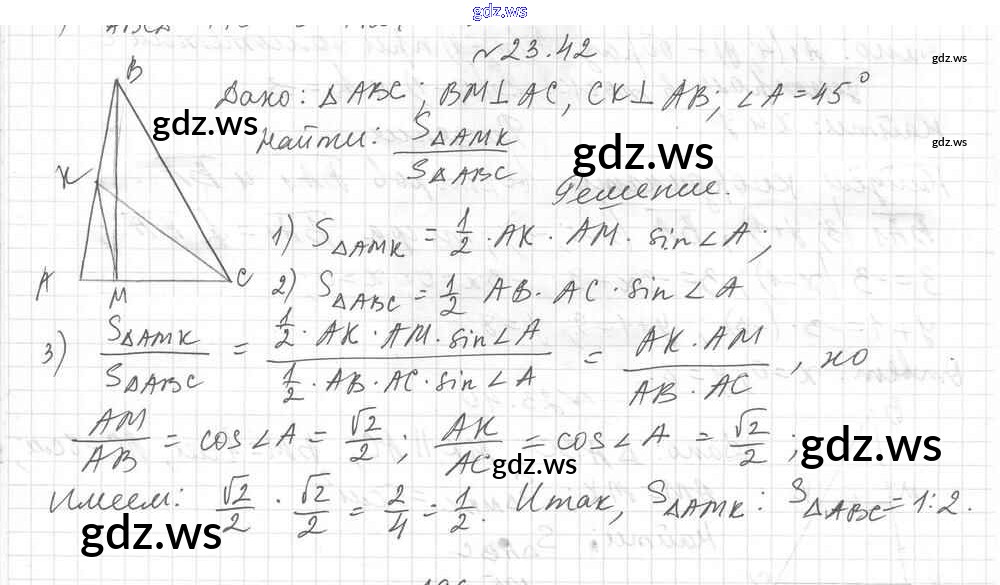 gdz.ws
№23.42
gdz.ws
Дано: △ABC; BM⊥AC, CK⊥AB; ∠A = 45°
gdz.ws
Найти: S△AMK / S△ABC
gdz.ws
gdz.ws
Решение.
B
K
A
M
C
1) S△AMK = 1/2 · AK · AM · sin∠A;
2) S△ABC = 1/2 AB · AC · sin∠A
3) S△AMK / S△ABC = (1/2 · AK · AM · sin∠A) / (1/2 · AB · AC · sin∠A) = (AK · AM) / (AB · AC), но
AM/AB = cos∠A = √2/2; AK/AC = cos∠A = √2/2;
gdz.ws
gdz.ws
Имеем: √2/2 · √2/2 = 2/4 = 1/2. Итак, S△AMK : S△ABC = 1:2.
gdz.ws